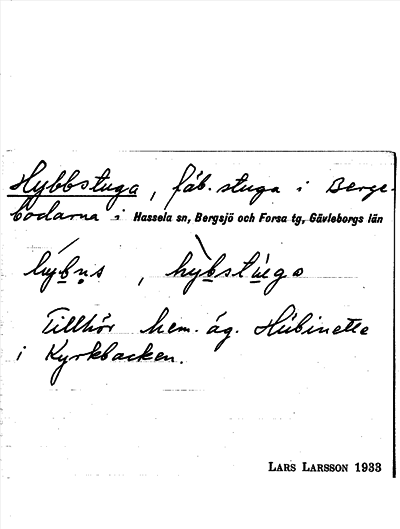 Hybbstuga, fäb. stuga i Berge-
bodarna i Hassela sn, Bergsjö och Forsa tg, Gävleborgs län
hybns, hybstuga
Tillhör hem. äg. Hübinette
i Kyrkbacken.
LARS LARSSON 1933